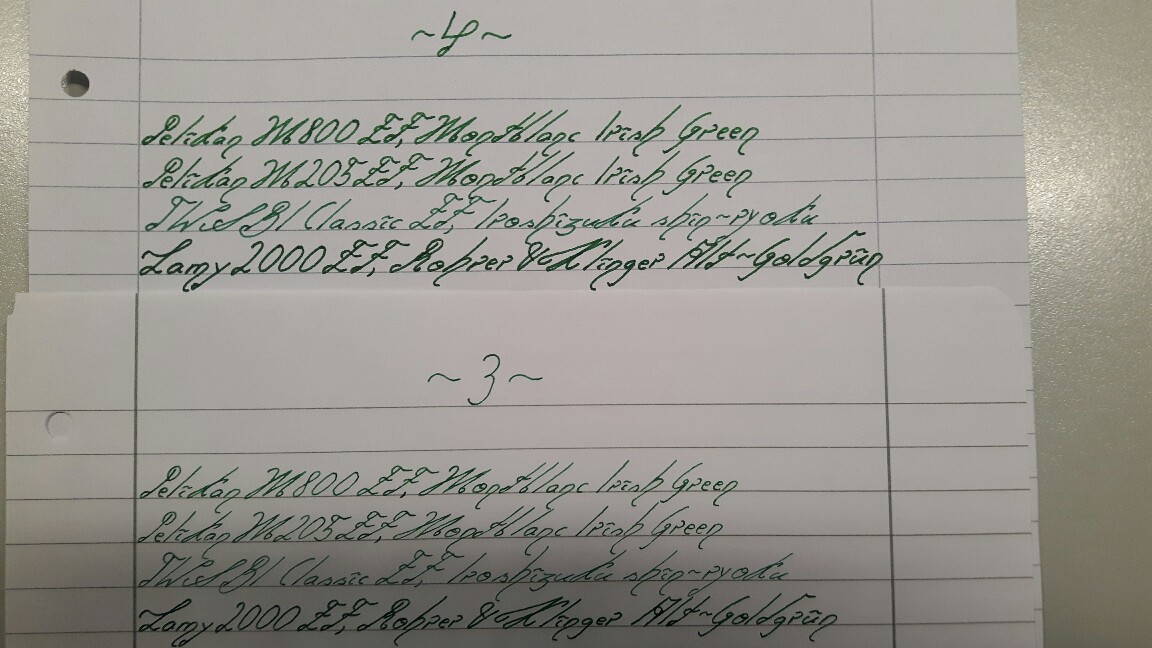 ~4~
Pelikan M800 EF, Montblanc Irish Green
Pelikan M205 EF, Montblanc Irish Green
TWSBI Classic EF, Iroshizuku shin-ryoku
Lamy 2000 EF, Rohrer & Klinger Alt-Goldgrün
~3~
Pelikan M800 EF, Montblanc Irish Green
Pelikan M205 EF, Montblanc Irish Green
TWSBI Classic EF, Iroshizuku shin-ryoku
Lamy 2000 EF, Rohrer & Klinger Alt-Goldgrün